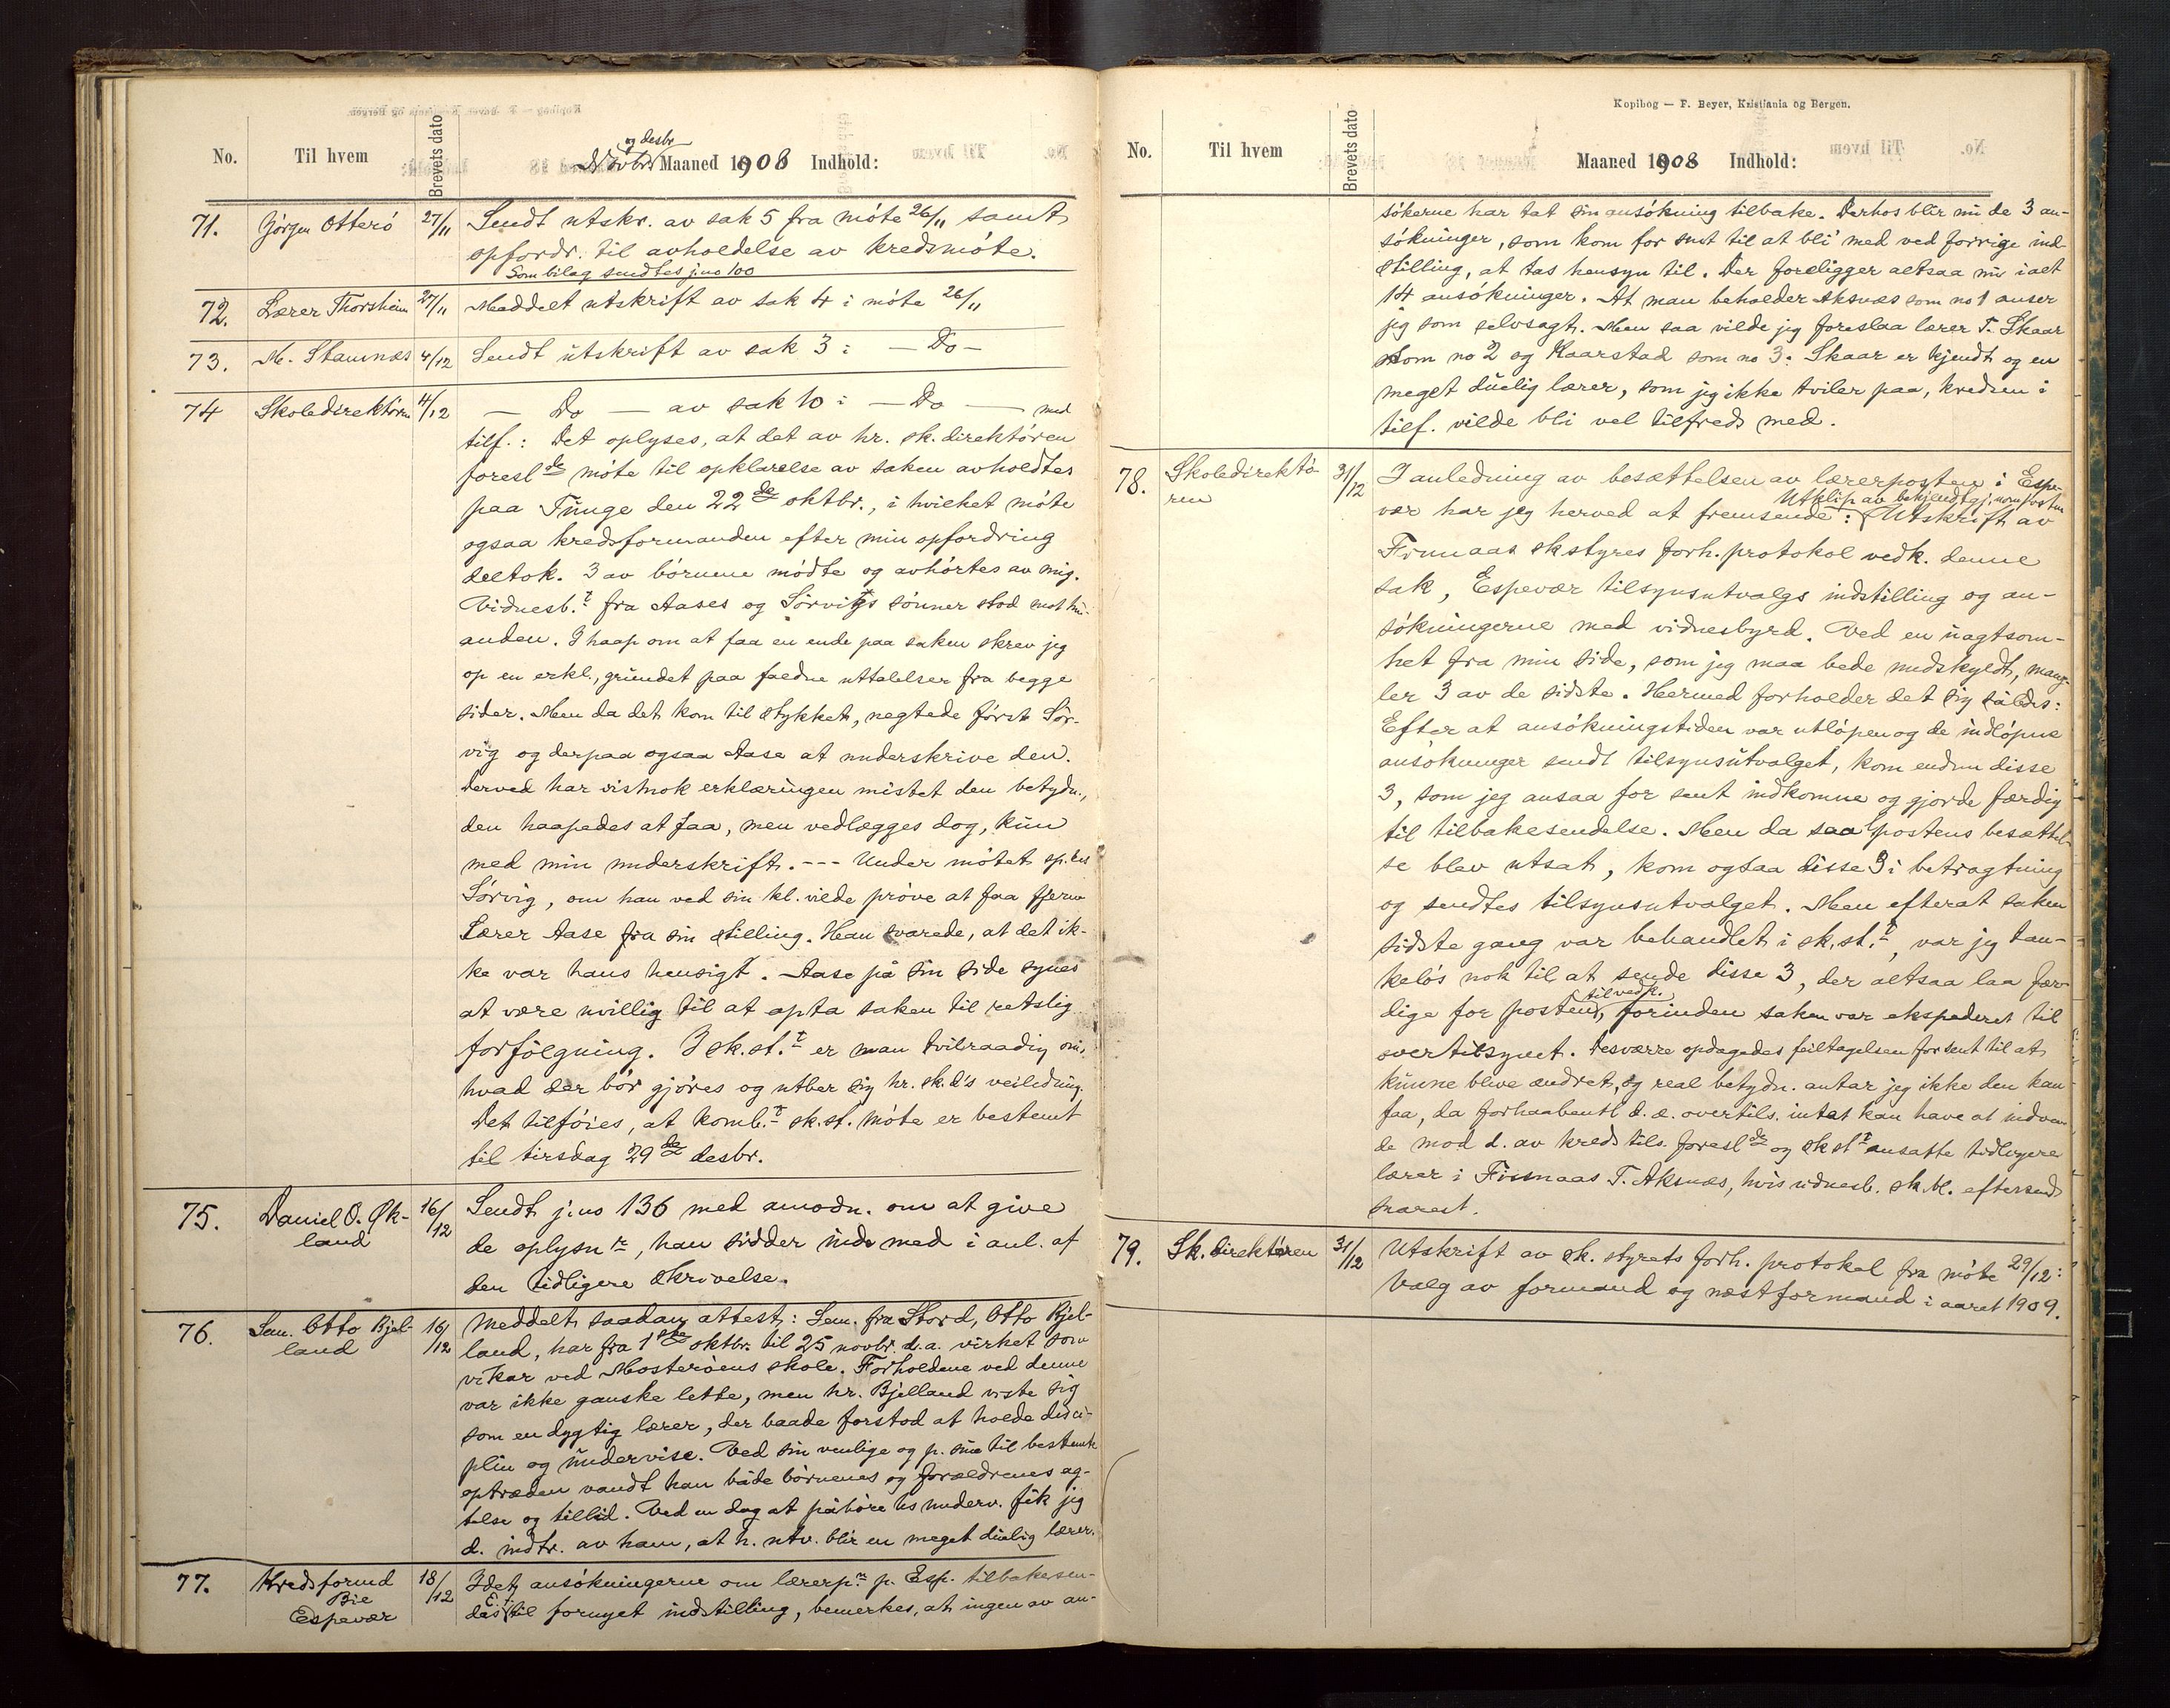 No. Til hvem Brevets dato Novbr og desbr Maaned 1908 Indhold:
71. Jörgen Otterö 27/11 Sendt utskr. av sak 5 fra möte 26/11 samt
opfordr. til avholdelse av kredsmöte.
Som bilag sendtes j.no 100
72. Lærer Thorsheim 27/11 Meddelt utskrift av sak 4 i möte 26/11
73. M. Stamnæs 4/12 Sendt utskrift av sak 3 i — Do —
74 Skoledirektören 4/12 — Do — av sak 10 i — Do — med
tilf.: Det oplyses, at det av hr. sk. direktören
foresl.de möte til opklarelse av saken avholdtes
paa Tunge den 22de oktbr., i hvilket möte
ogsaa kredsformanden efter min opfordring
deltok. 3 av börnene mödte og avhörtes av mig.
Vidnesb.t fra Aases og Sörvigs sönner stod mot hin-
anden. I haap om at faa en ende paa saken skrev jeg
op en erkl., grundet paa faldne uttalelser fra begge
sider. Men da det kom til stykket, negtede först Sör-
vig og derpaa ogsaa Aase at underskrive den.
Derved har vistnok erklæringen mistet den betydn.,
den haapedes at faa, men vedlægges dog, kun
med min underskrift. --- Under mötet sp.tes
Sörvig, om han ved sin kl. vilde pröve at faa fjernet
Lærer Aase fra sin stilling. Han svarede, at det ik-
ke var hans hensigt. Aase på sin side synes
at være uvillig til at opta saken til retslig
forfölgning. I sk.st.t er man tvilraadig om,
hvad der bör gjöres og utber sig hr. sk.d's veiledning.
Det tilföies, at komb.t sk.st. möte er bestemt
til tirsdag 29de desbr.
75. Daniel O. Øk-
land 16/12 Sendt j.no 136 med anmodn. om at give
de oplysn.r, han sidder inde med i anl. af
den tidligere skrivelse.
76. Sem. Otto Bjel-
land 16/12 Meddelt saadan attest: Sem. fra Stord, Otto Bjel-
land, har fra 1ste oktbr. til 25 novbr. d.a. virket som
vikar ved Mosteröens skole. Forholdene ved denne
var ikke ganske lette, men hr. Bjelland viste sig
som en dygtig lærer, der baade forstod at holde disci-
plin og undervise. Ved sin venlige og p. sine til bestemte
optræden vandt han både börnenes og forældrenes ag-
telse og tillid. Ved en dag at påhöre hs underv. fik jeg
d. indtr. av ham, at h. utv. blir en meget duelig lærer.
77. Kredsformd
Bie
Espevær 18/12 Idet ansökningerne om lærerp.n p. Esp. tilbakesen-
des E.t. til fornyet indstilling, bemerkes, at ingen av an-
Kopibog — F. Beyer, Kristiania og Bergen.
No. Til hvem Brevets dato Maaned 1908 Indhold:
sökerne har tat sin ansökning tilbake. Derhos blir nu de 3 an-
sökninger, som kom for sent til at bli med ved forrige ind-
stilling, at tas hensyn til. Der foreligger altsaa nu ialt
14 ansökninger. At man beholder Aksnæs som no 1 anser
jeg som selvsagt. Men saa vilde jeg foreslaa lærer T. Skaar
som no 2 og Kaarstad som no 3. Skaar er kjendt og en
meget duelig lærer, som jeg ikke tviler paa, kredsen i
tilf. vilde bli vel tilfreds med.
78. Skoledirektö-
ren 31/12 I anledning av besættelsen av lærerposten i Espe-
vær har jeg herved at fremsende: Utklip av bekjendtgj. om posten Utskrift av
Finnaas skstyres forh. protokol vedk. denne
sak, Espevær tilsynsutvalgs indstilling og an-
sökningerne med vidnesbyrd. Ved en uagtsom-
het fra min side, som jeg maa bede undskyldt, mang-
ler 3 av de sidste. Hermed forholder det sig således:
Efter at ansökningstiden var utlöpen og de indlöpne
ansökninger sendt tilsynsutvalget, kom endnu disse
3, som jeg ansaa for sent indkomne og gjorde færdig
til tilbakesendelse. Men da saa postens besættel-
se blev utsat, kom ogsaa disse 3 i betragtning
og sendtes tilsynsutvalget. Men efterat saken
sidste gang var behandlet i sk.st.t, var jeg tan-
kelös nok til at sende disse 3, der altsaa laa fær-
dige for posten, til vedk. forinden saken var ekspederet til
overtilsynet. Desværre opdagedes feiltagelsen for sent til at
kunne blive ændret, og real betydn. antar jeg ikke den kan
faa, da forhaabentl. d. æ. overtils. intet kan have at indven-
de mod d. av kreds tils. foresl.de og skst.t ansatte tidligere
lærer i Finnaas T. Aksnæs, hvis vidnesb. sk. bl. eftersendt
snarest.
79. Sk. direktören 31/12 Utskrift av sk. styrets forh. protokol fra möte 29/12:
Valg av formand og næstformand i aaret 1909.